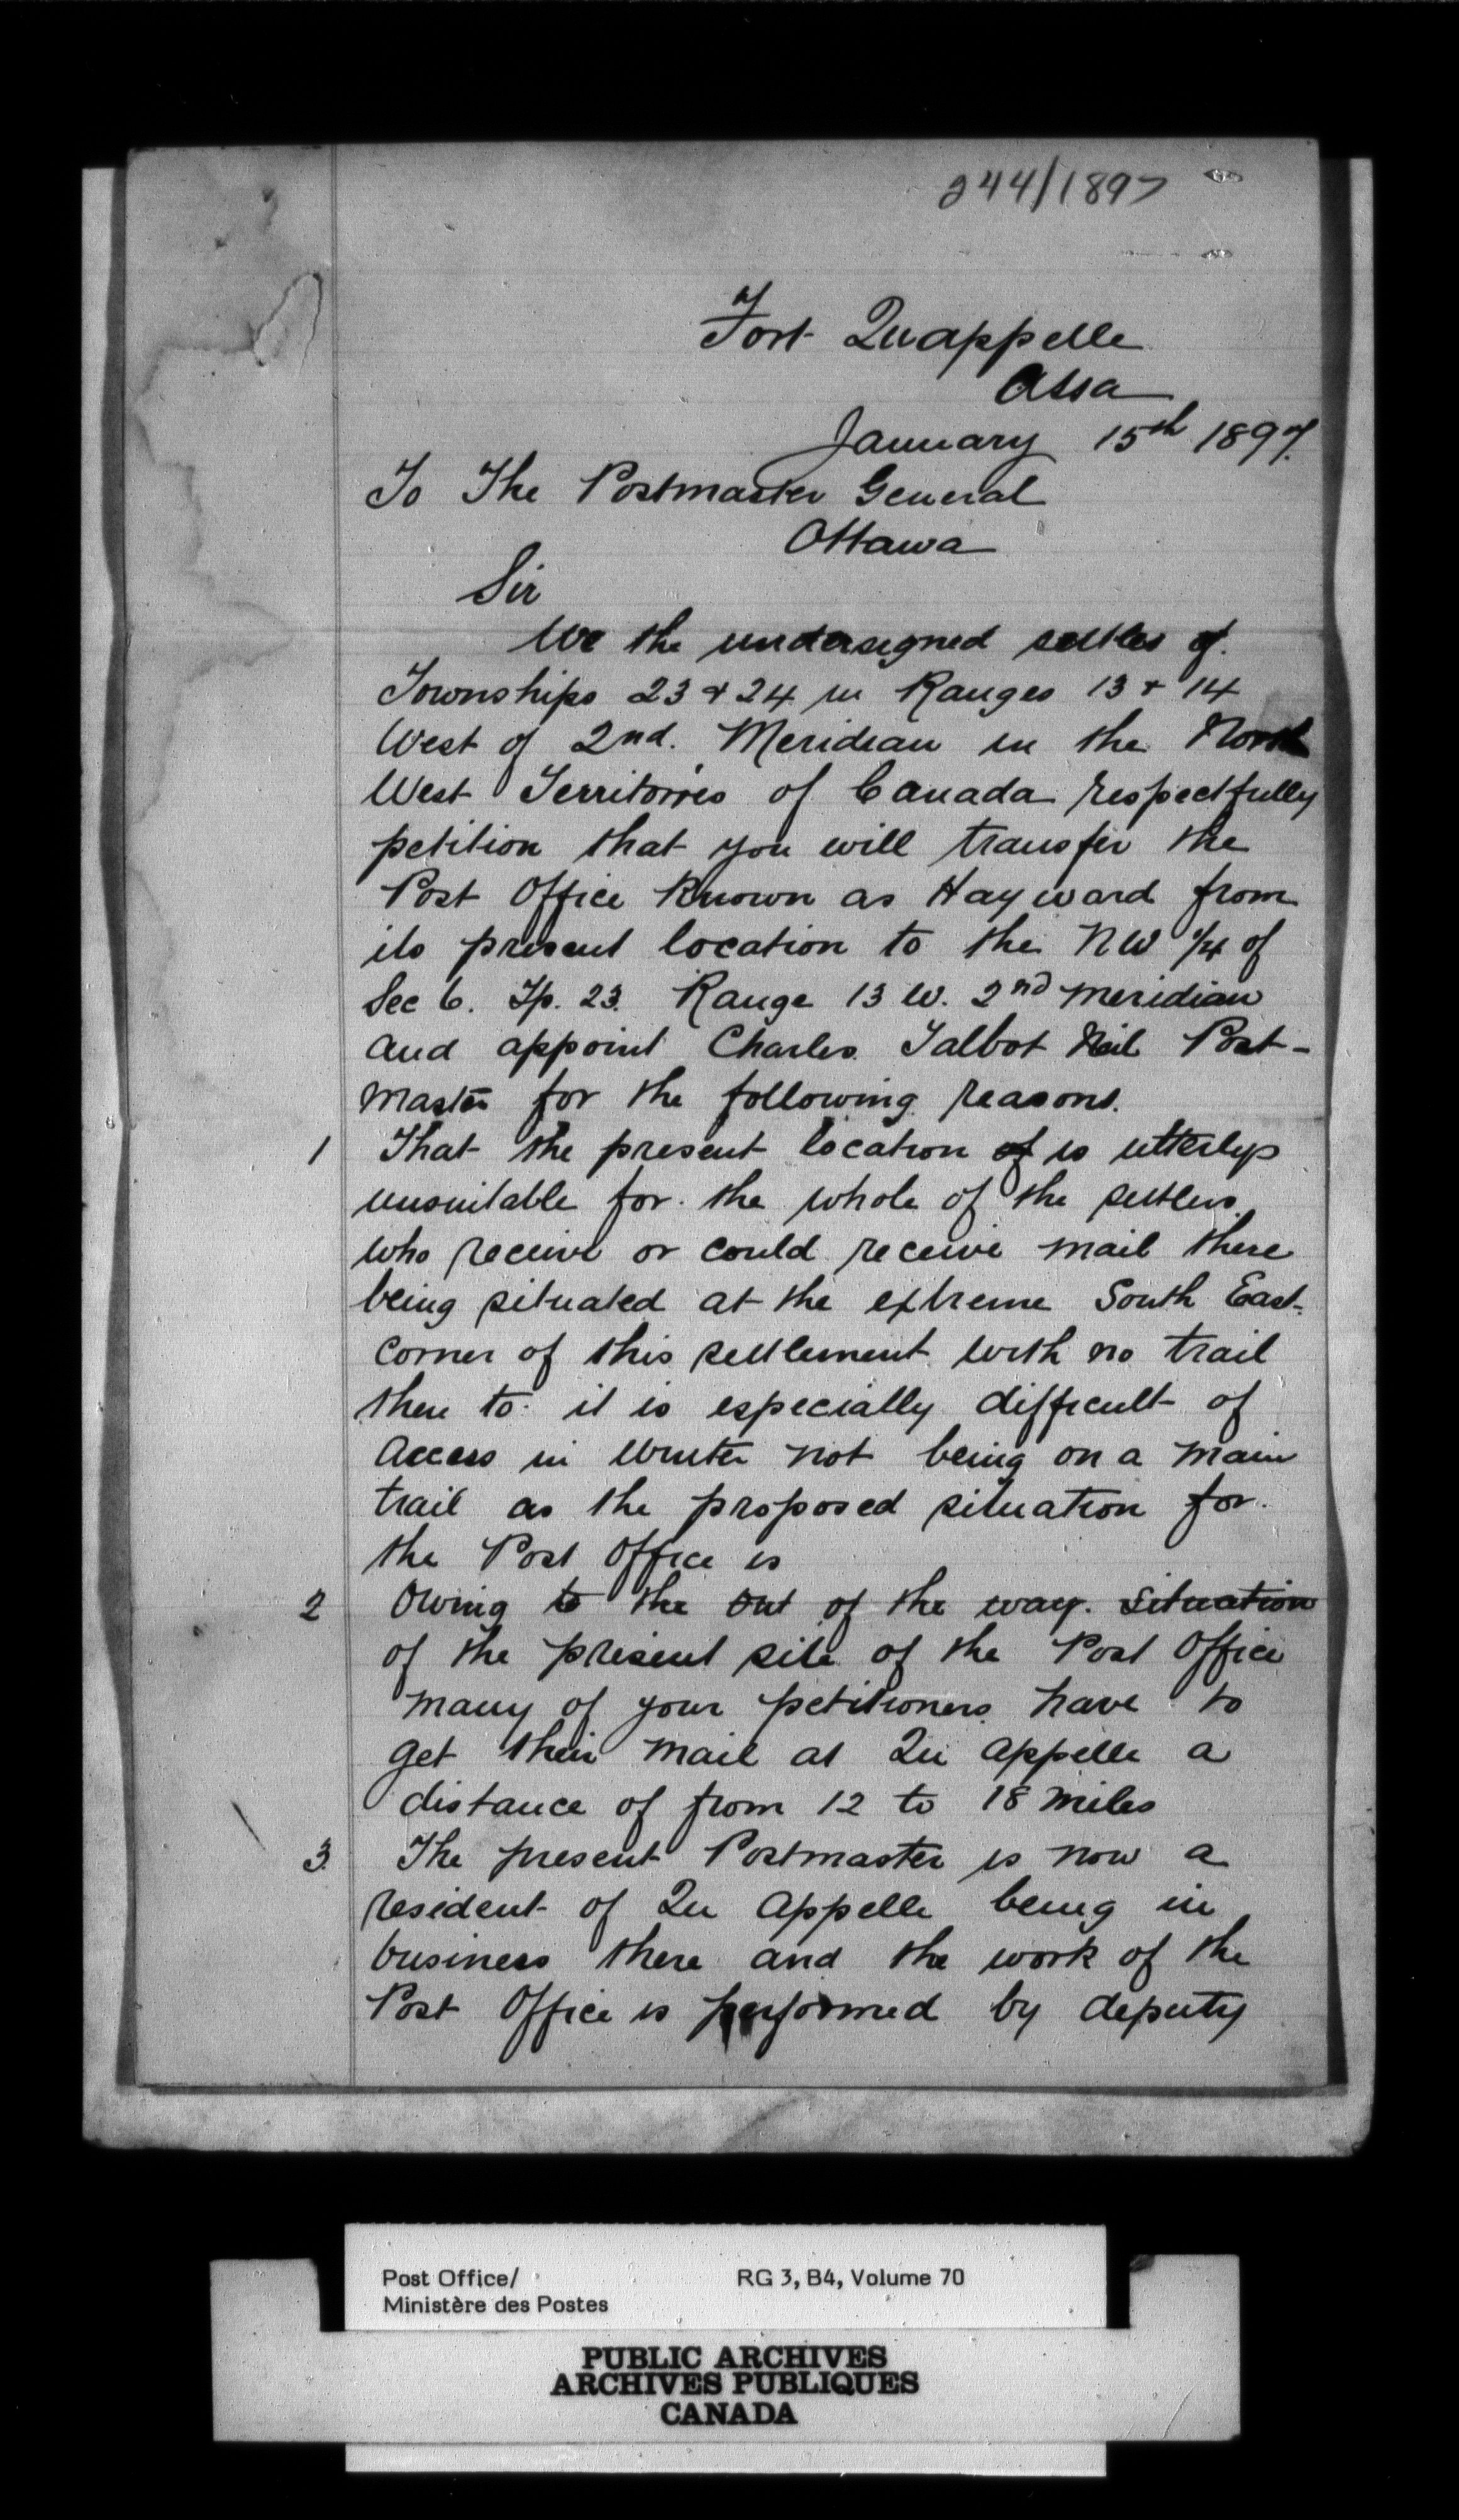 244/1897
Fort Qu'appelle
Assa
January 15th 1897.
To The Postmaster General
Ottawa
Sir
We the undersigned settles of
Townships 23 & 24 in Ranges 13 & 14
West of 2nd. Meridian in the North
West Territories of Canada respectfully
petition that you will transfer the
Post Office Known as Hayward from
its present location to the NW 1/4 of
Sec 6. Tp. 23. Range 13 W. 2nd meridian
and appoint Charles Talbot Neil Post-
master for the following reasons.
1 That the present location of is utterly
unsuitable for the whole of the settlers
who receive or could receive mail there
being situated at the extreme South East
corner of this settlement with no trail
there to it is especially difficult of
access in winter not being on a main
trail as the proposed situation for
the Post Office is
2 Owing to the out of the way situation
of the present site of the Post Office
many of your petitioners have to
get their mail at Qu appelle a
distance of from 12 to 18 miles
3. The present Postmaster is now a
resident of Qu Appelle being in
business there and the work of the
Post Office is performed by deputy
Post Office/ RG 3, B4, Volume 70
Ministère des Postes
PUBLIC ARCHIVES
ARCHIVES PUBLIQUES
CANADA